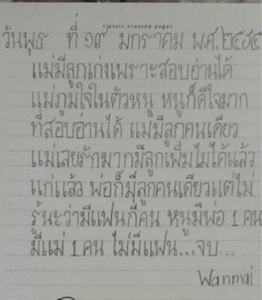 classic crossed pages
วันพุธ ที่ ๑๙ มกราคม พ.ศ.๒๕๔๕
แม่มีลูกเก่งเพราะสอบอ่านได้
แม่ภูมิใจในตัวหนู หนูก็ดีใจมาก
ที่สอบอ่านได้ แม่มีลูกคนเดียว
แม่เลยรักมากมีลูกเพิ่มไม่ได้แล้ว
แก่แล้ว พ่อก็มีลูกคนเดียวแต่ไม่
รู้นะว่ามีแฟนกี่คน หนูมีพ่อ 1 คน
มีแม่ 1 คน ไม่มีแฟน...จบ...
Wanmai